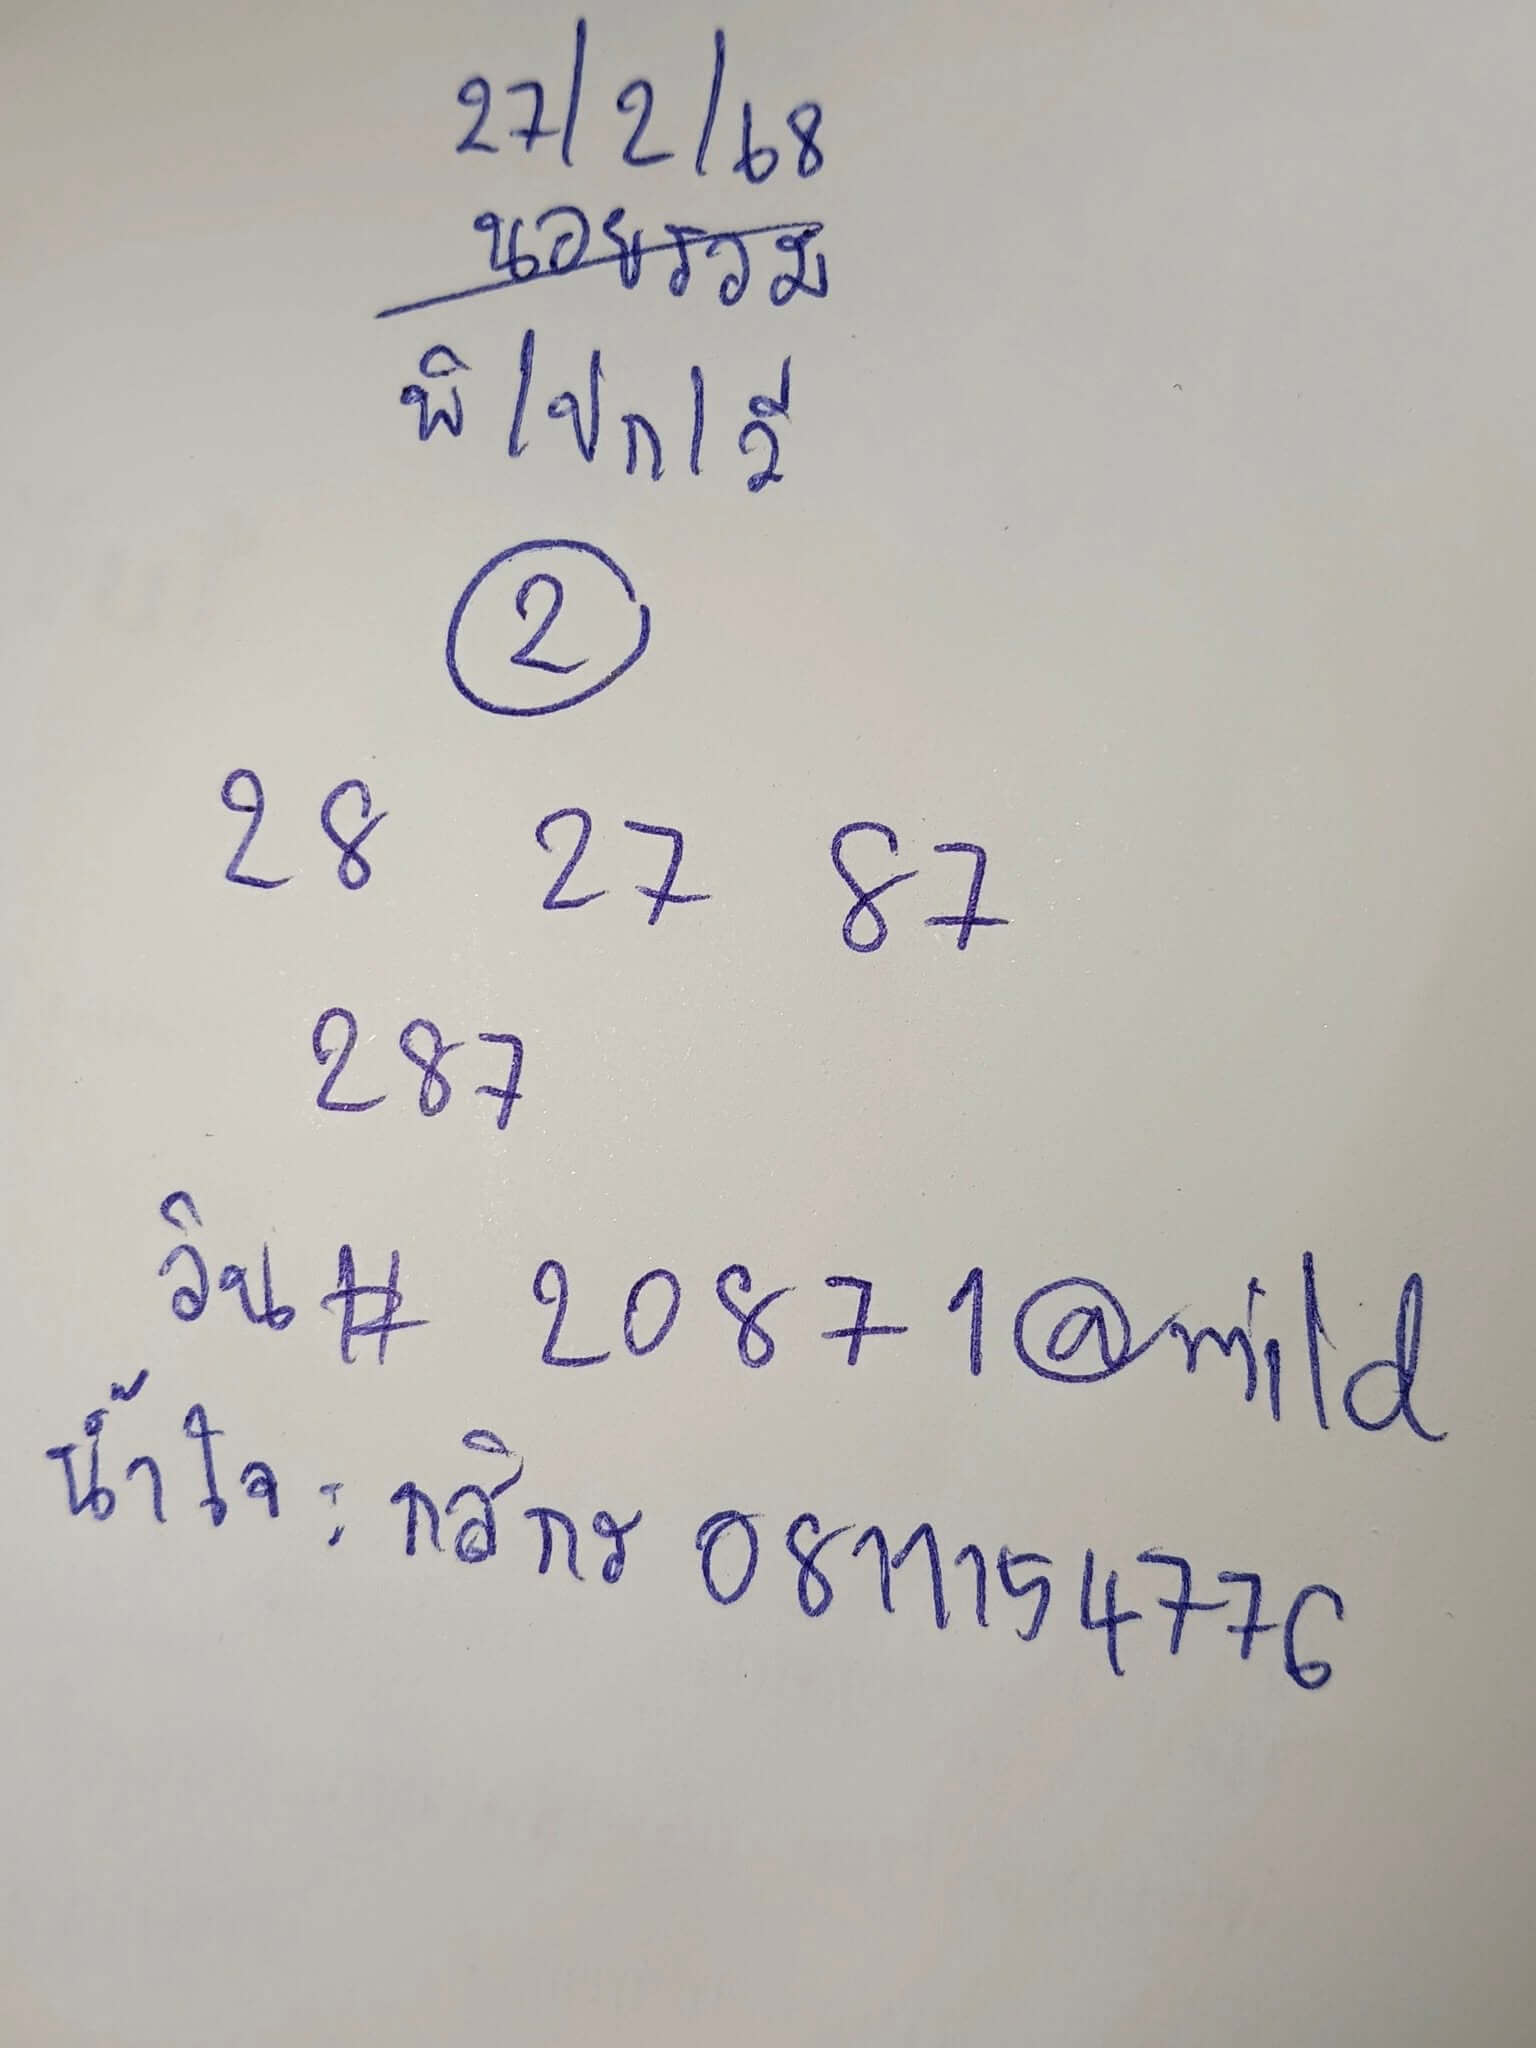 27/2/68
นอยรวม
พิ/ปก/วี
2
28 27 87
287
วิน # 20871@mild
น้ำใจ : กสิกร 0811154776